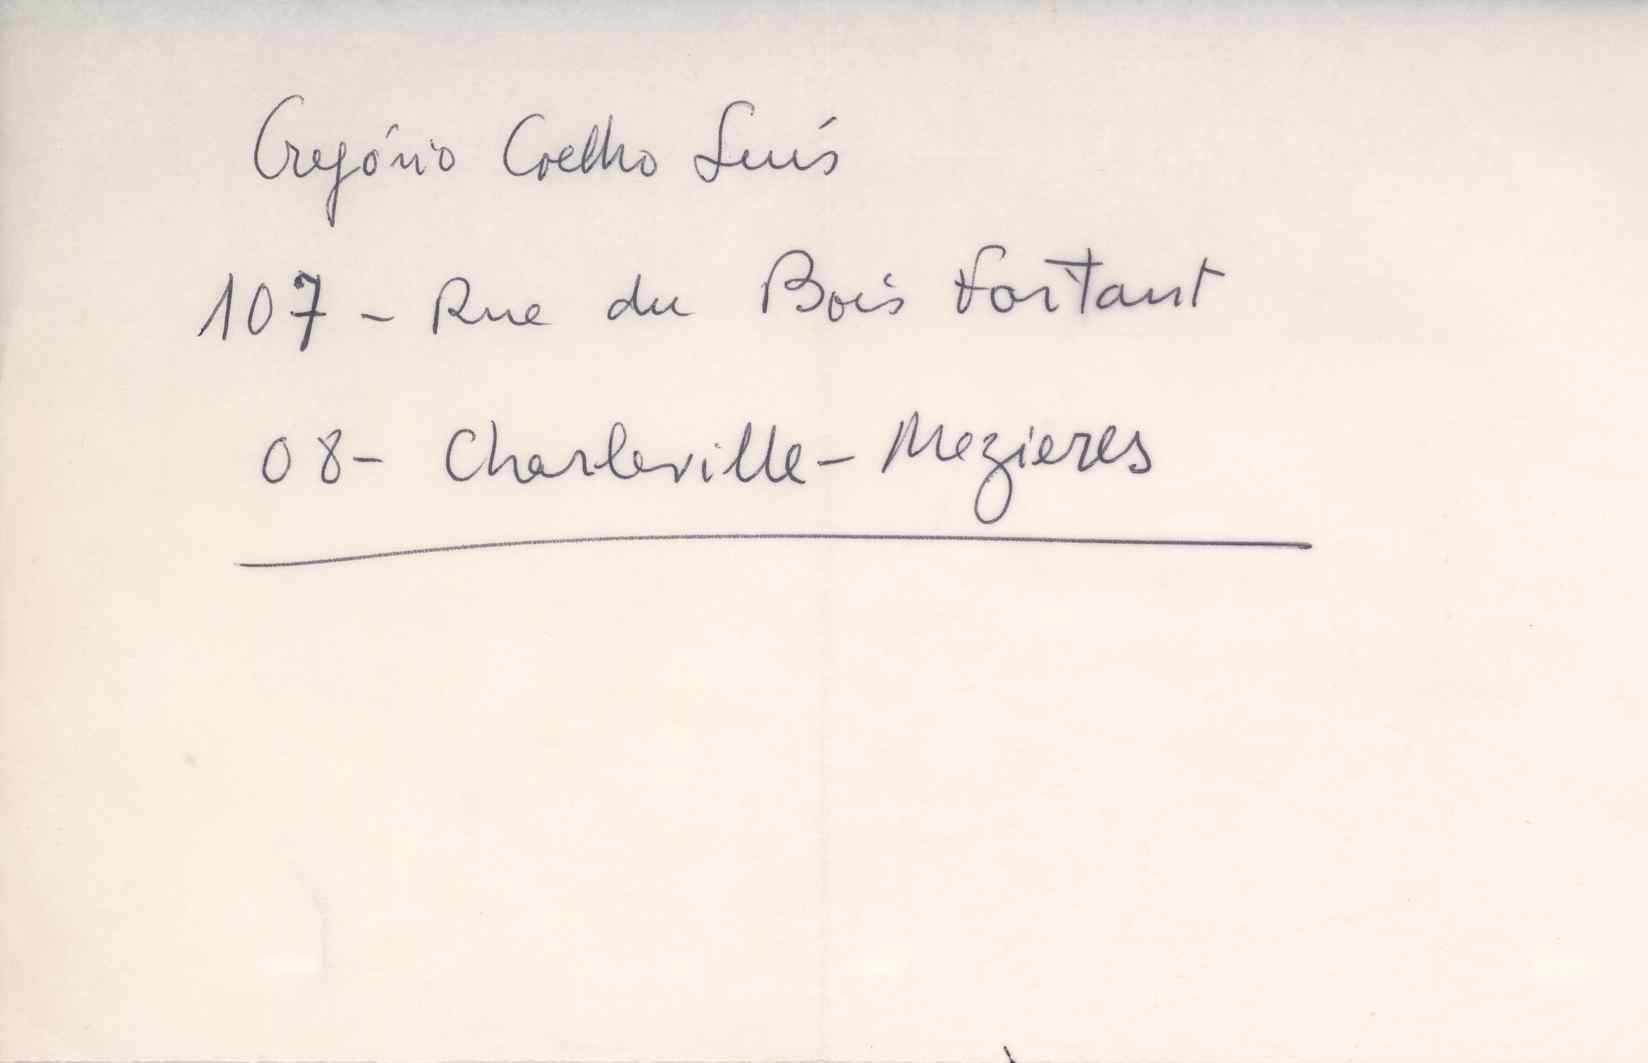 Gregório Coelho Luís
107 - Rue du Bois Fortant
08 - Charleville - Mezieres